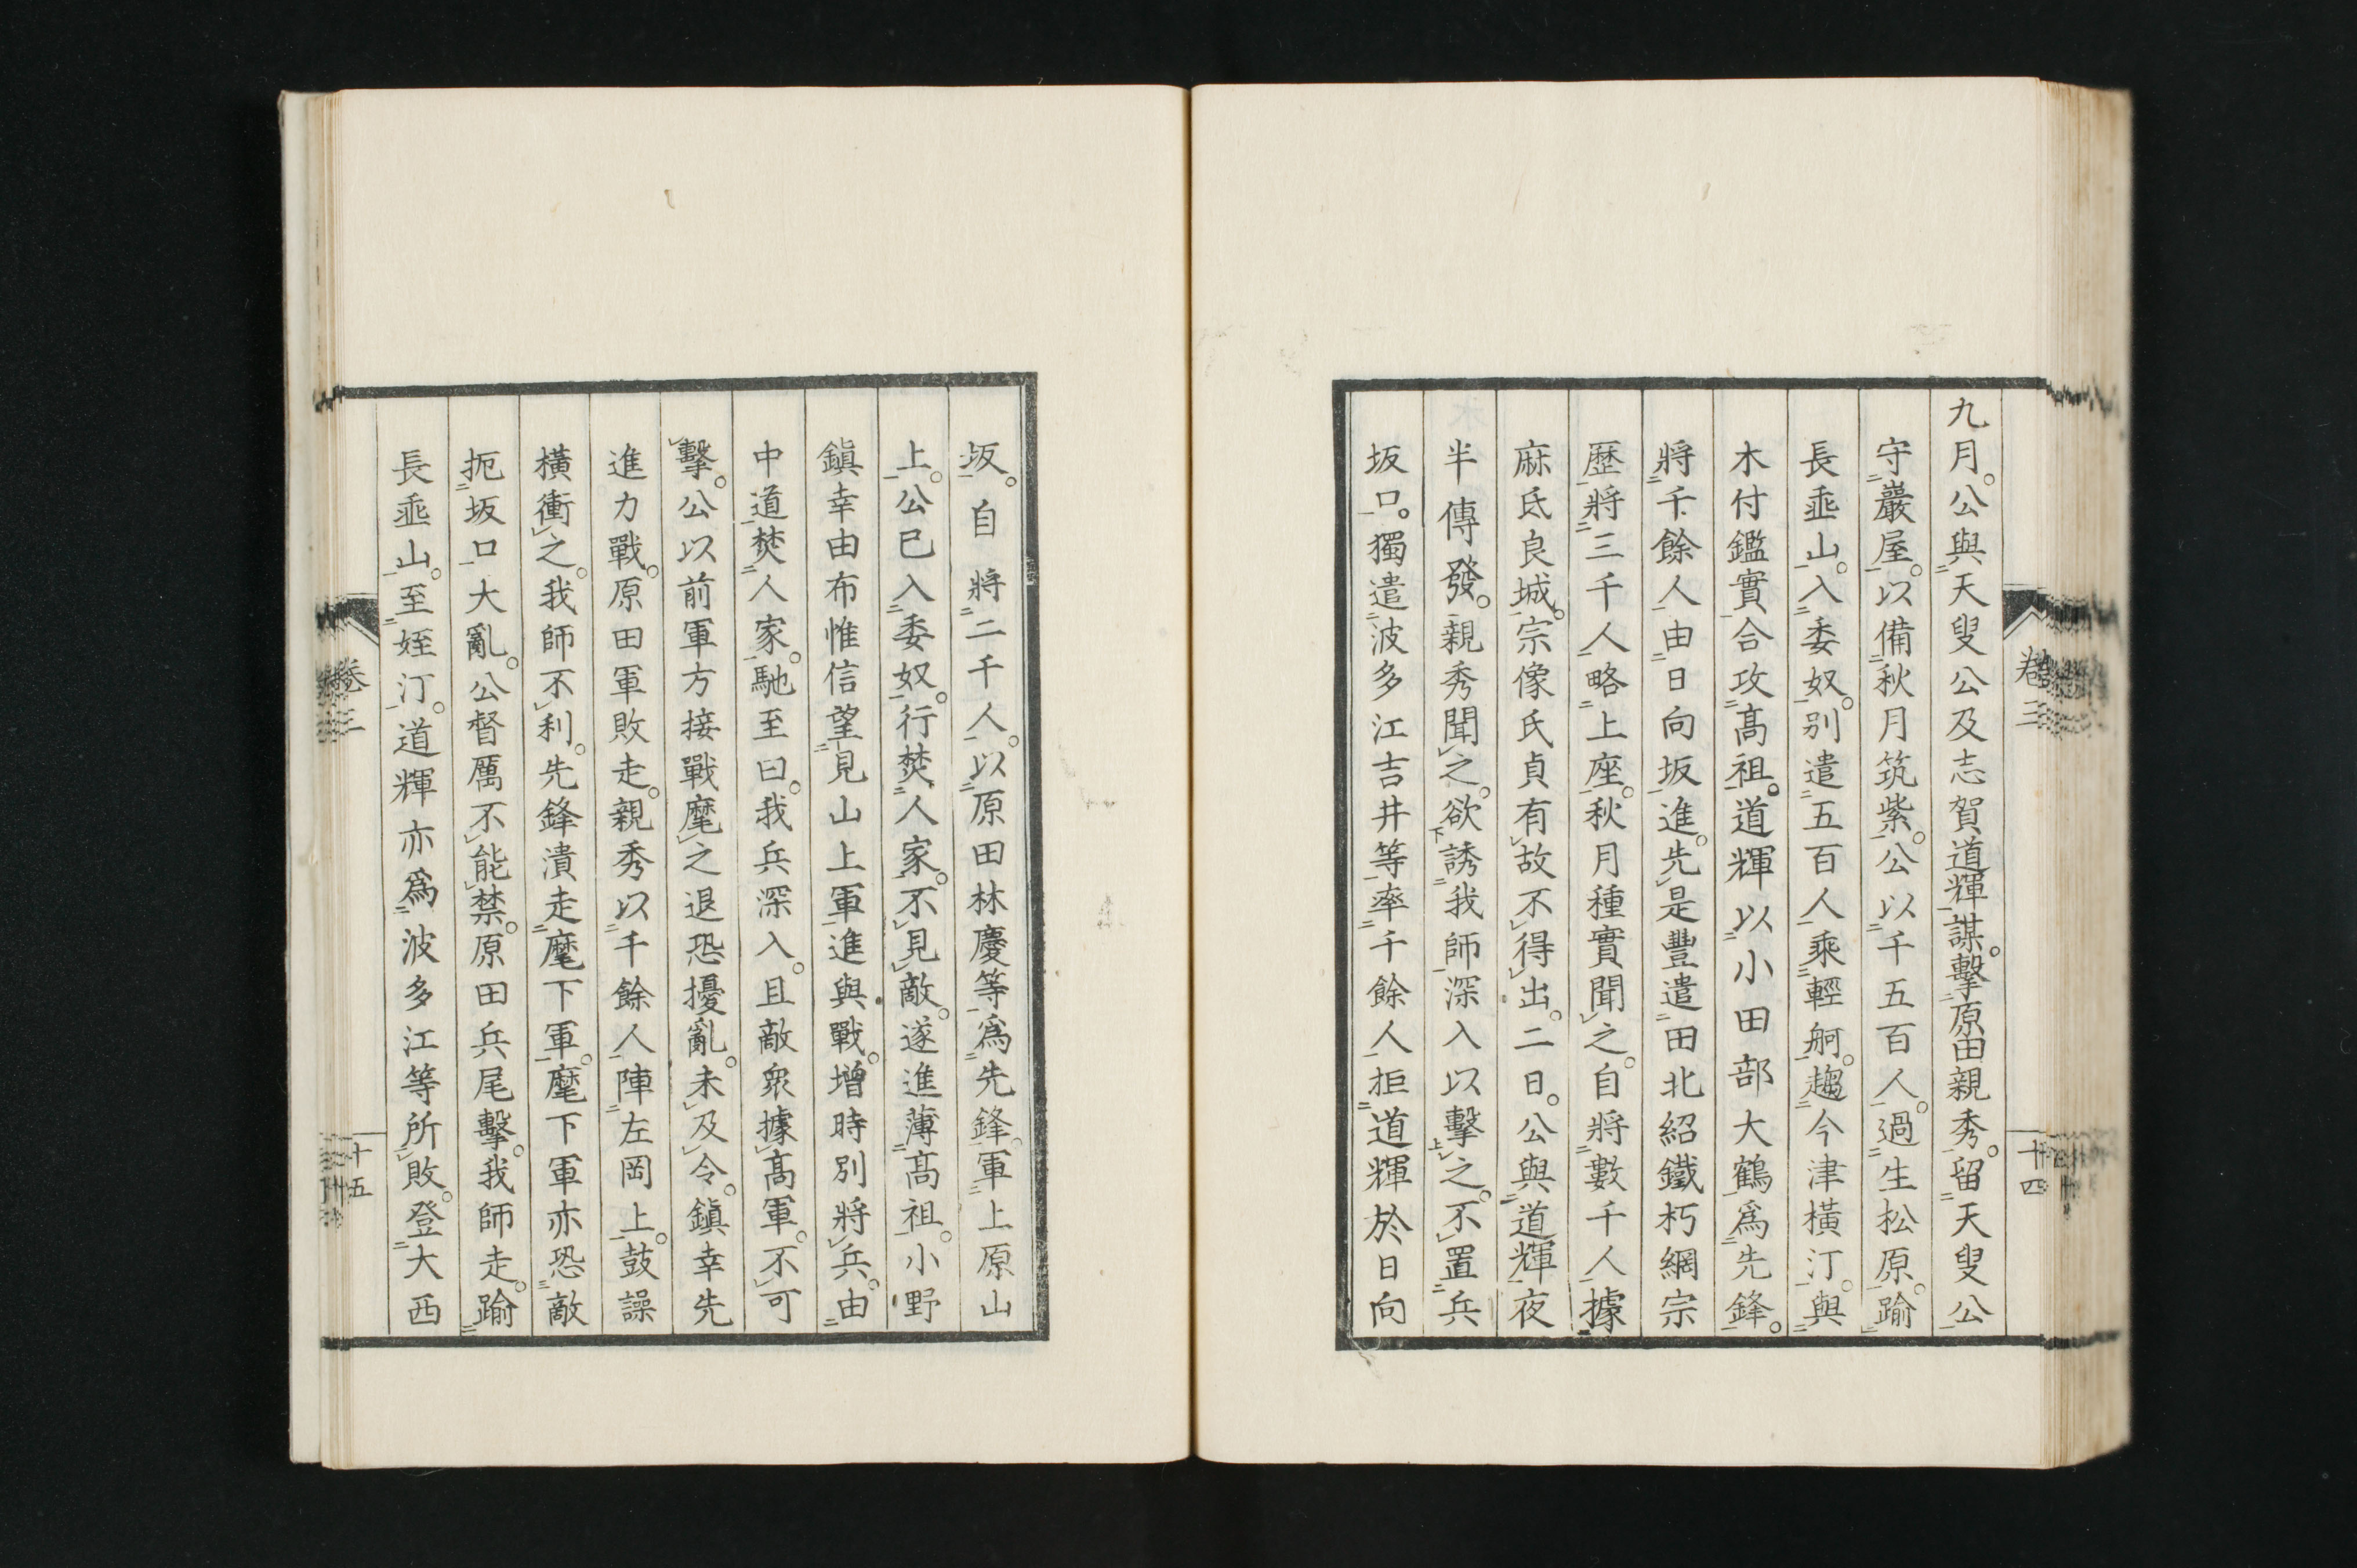 九月。公與天叟公及志賀道輝謀。擊原田親秀。留天叟公
守巖屋。以備秋月筑紫。公以千五百人。過生松原。踰
長垂山。入委奴。別遣五百人乘輕舸。趨今津橫汀。與
木付鑑實合攻高祖。道輝以小田部大鶴爲先鋒。
將千餘人由日向坂進。先是豐遣田北紹鐵朽網宗
歷將三千人略上座。秋月種實聞之。自將數千人據
麻氐良城。宗像氏貞有故不得出。二日。公與道輝夜
半傳發。親秀聞之。欲誘我師深入以擊之。不置兵
坂口。獨遣波多江吉井等率千餘人拒道輝於日向
卷三
十四
坂。自將二千人。以原田林慶等爲先鋒。軍上原山
上。公已入委奴。行焚人家。不見敵。遂進薄高祖。小野
鎭幸由布惟信望見山上軍進與戰。增時別將兵。由
中道焚人家。馳至曰。我兵深入。且敵衆據高軍。不可
擊。公以前軍方接戰麾之退恐擾亂。未及令。鎭幸先
進力戰。原田軍敗走。親秀以千餘人陣左岡上。鼓譟
橫衝之。我師不利。先鋒潰走麾下軍。麾下軍亦恐敵
扼坂口大亂。公督厲不能禁。原田兵尾擊。我師走。踰
長垂山。至姪汀。道輝亦爲波多江等所敗。登大西
卷三
十五